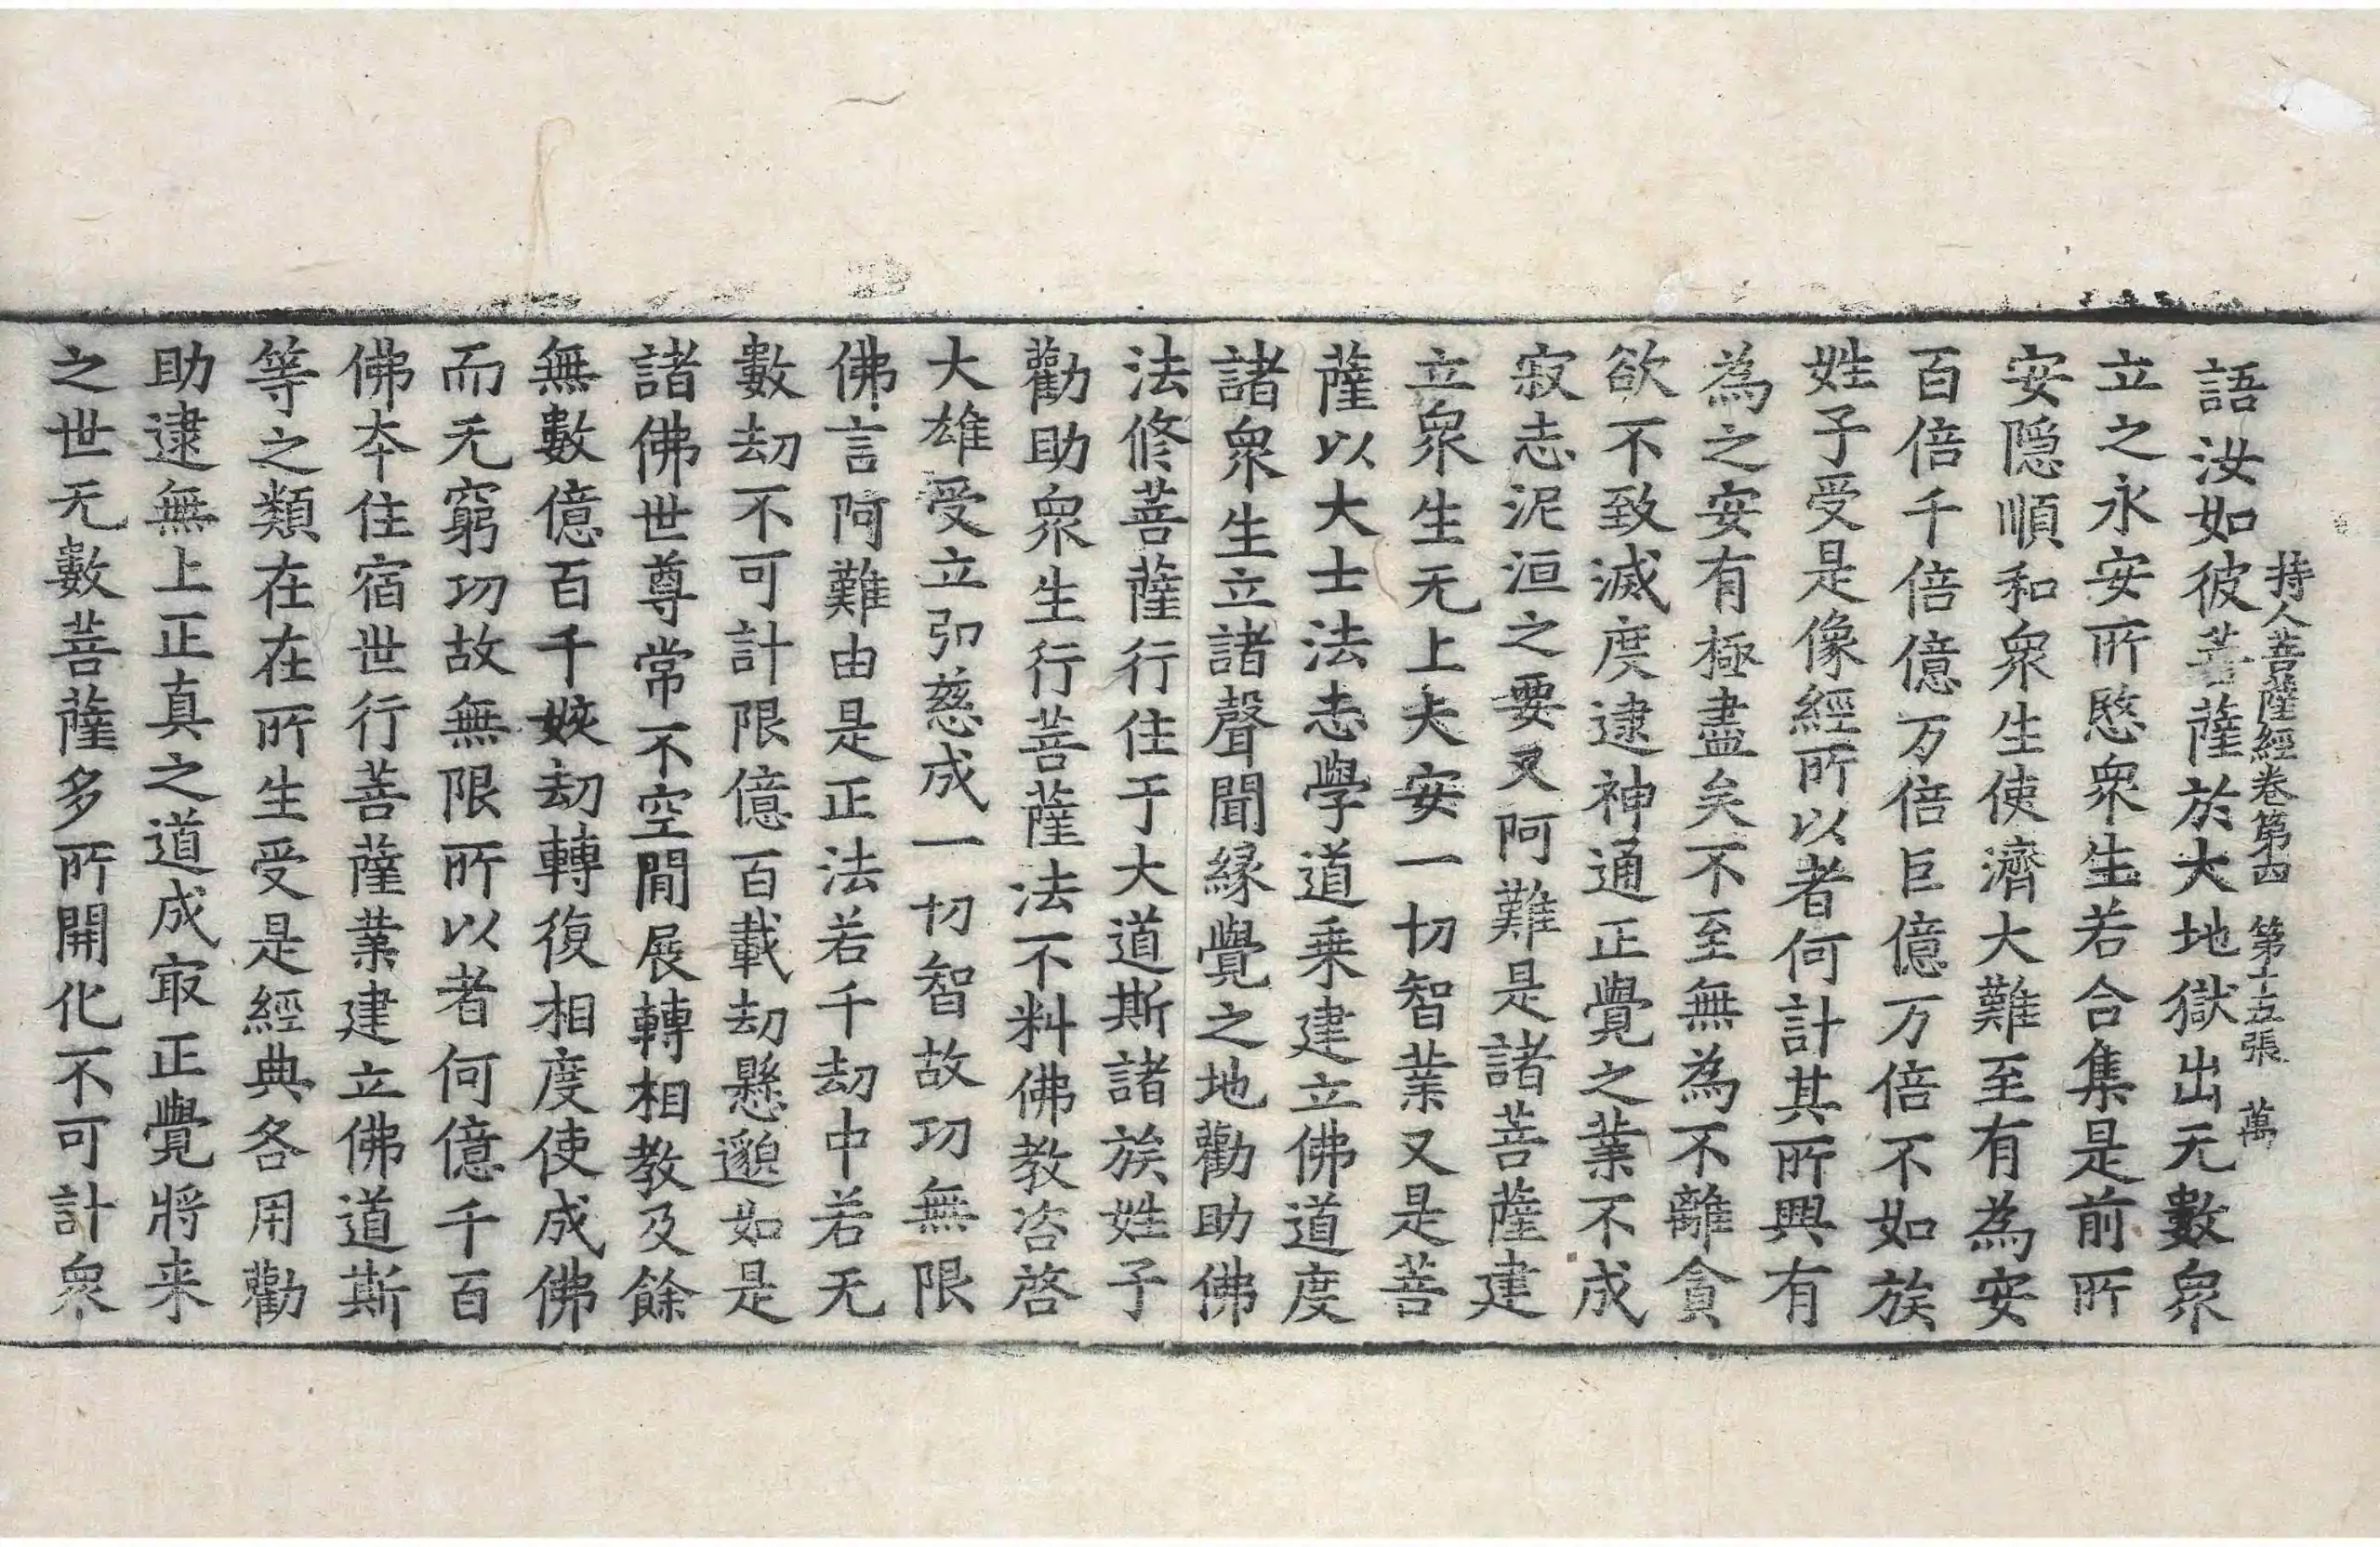 持人菩薩經卷第四　第十五張　萬
語汝如彼菩薩於大地獄出无數衆
立之永安所愍衆生若合集是前所
安隠順和衆生使濟大難至有為安
百倍千倍億万倍巨億万倍不如族
姓子受是像經所以者何計其所興有
為之安有極盡矣不至無為不離貪
欲不致滅度逮神通正覺之業不成
寂志泥洹之要又阿難是諸菩薩建
立衆生无上大安一切智業又是菩
薩以大士法志學道乗建立佛道度
諸衆生立諸聲聞緣覺之地勸助佛
法修菩薩行住于大道斯諸族姓子
勸助衆生行菩薩法不料佛教咨啓
大雄受立弘慈成一切智故功無限
佛言阿難由是正法若千劫中若无
數劫不可計限億百載劫懸邈如是
諸佛世尊常不空閒展轉相教及餘
無數億百千姟劫轉復相度使成佛
而无窮功故無限所以者何億千百
佛本住宿世行菩薩業建立佛道斯
等之類在在所生受是經典各用勸
助逮無上正真之道成㝡正覺將来
之世无數菩薩多所開化不可計衆